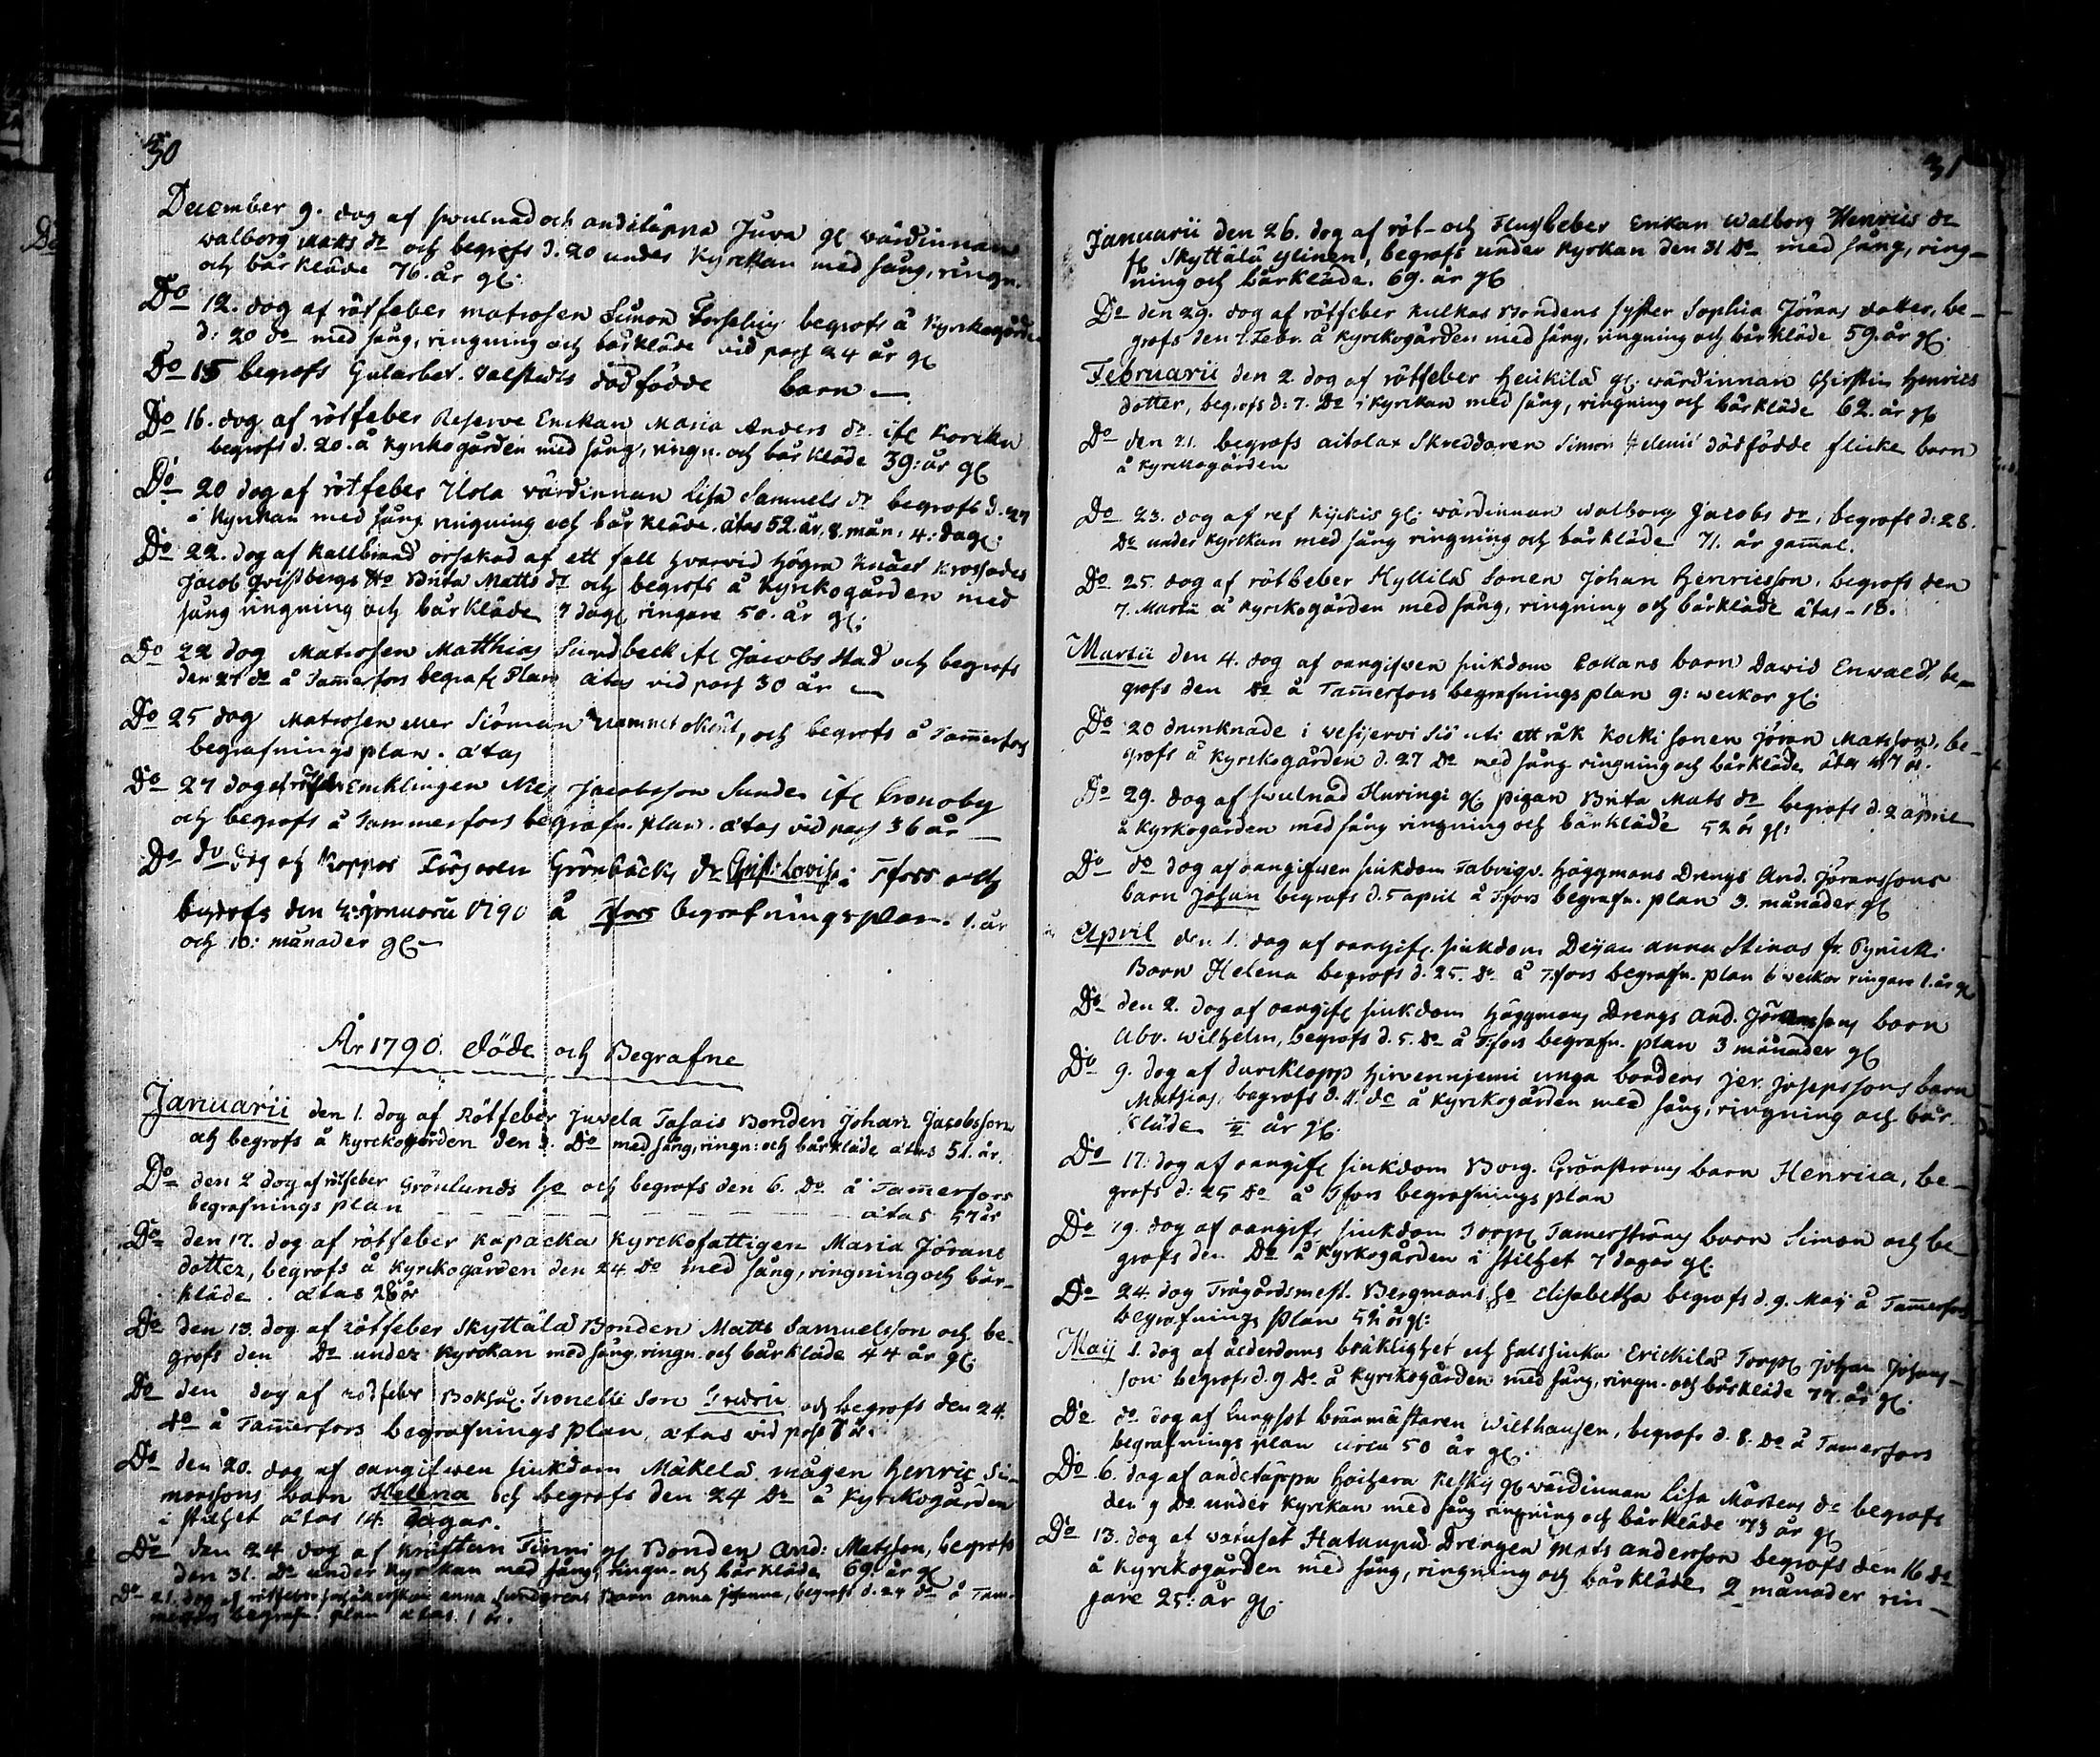 30
December 9. dog af swulnad och andtäppa Juva gl wärdinnan
walborg Matts dr och begrofs d. 20 under Kyrckan med sång, ringn.
och bårkläde 76. år gl.
Do 12. dog af rötfeber matrosen Simon Forselius begrofs å Kyrckogården
d: 20 do med sång, ringning och bårkläde vid pass 24 år gl
Do 15 begrofs Gularbet. Valstedts dödfödde barn —
Do 16. dog af rötfeber Reserve Enckan Maria Anders dr. ifr
begrofs d. 20. å Kyrkogården med sång, ringn. och bårkläde 39: år gl
Do 20 dog af rötfeber Uola värdinnan Lisa Samuels dr begrofs d. 27
i Kyrkan med sång ringning och bårkläde. ätas 52. år, 8. mån: 4. dag.
Do 22. dog af Kallbrand orsakad af ett fall hvarvid högra Knäet krossades
Jacob Qvistbergs Ho Brita Matts dr och begrofs å Kyrkogården med
sång ringning och bårkläde 7 dag ringare 50. år gl.
Do 22 dog Matrosen Matthias Sundbeck ifr Jacobs stad och begrofs
den 27 do å Tam̄erfors begrafn Plan ätas vid pass 30 år —
Do 25 dog Matrosen eller Siöman namnet okänt, och begrofs å Tam̄erfors
begrafningsplan. ätas
Do 27 dog af rötfeber Encklingen Nils Jacobsson Sunde ifr Cronoby
och begrofs å Tammerfors begrafn. plan. ätas vid pass 36 år —
Do do dog af Koppor Grönbäcks dr Christ: Lovisa i Tfors och
begrofs den Januarii 1790 å Tfors begrafningsplan. 1. år
och 10: månader gl —
År 1790. döde och Begrafne
Januarii den 1. dog af Rötfeber Juvela Tasais Bonden Johan Jacobsson
och begrofs å Kyrckogården den 3. Do med sång, ringn: och bårkläde ätas 51. år.
Do den 2 dog af rötfeber Grönlunds Ho och begrofs den 6. Do å Tam̄erfors
begrafnings plan — ätas 57 år
Do den 17. dog af rötfeber Kapacka Kyrckofattigen Maria Jörans
dotter, begrofs å Kyrckogården den 24 do med sång, ringning och bår-
kläde. ätas 28 år
Do den 13. dog af rötfeber Skyttälä Bonden Matts Samuelsson och be-
grofs den Do under Kyrckan med sång, ringn. och bårkläde 44 år gl.
Do den dog af rödfeber son Fredric och begrofs den 24.
do å Tam̄erfors begrafnings plan, ätas vid pass 8 år
Do den 20. dog af oangifwen siukdom Mäkelä mågen Henric Si-
monssons barn Helena och begrofs den 24 Do å Kyrckogården
i stillhet ätas 14 dagar.
Do den 24 dog af Finni gl Bonden And: Matsson, begrofs
den 31. Do under Kyrkan med sång, ringn. och bårkläde 69 år gl
Do 21. dog af rötfeber anna Sundgrens Barn anna Johanna, begrofs d. 24 do å Tam-
merfors begrafn. plan ätas 1 år.
31
Januarii den 26. dog af röt- och Flussfeber Enkan Walborg Henrics dr
fr Skyttälä Ylinen, begrofs under Kyrkan den 31 Do med sång, ring-
ning och bårkläde. 69. år gl
Do den 29. dog af rötfeber Kulkas Bondens syster Sophia Jörans dotter, be-
grofs den 7. Febr. å Kyrckogården med sång, ringning och bårkläde 59. år gl.
Februarii den 2 dog af rötfeber Heikilä gl. wärdinnan Christin Henrics
dotter, begrofs d: 7. Do i Kyrckan med sång, ringning och bårkläde 62. år gl
Do den 21. begrofs aitolax Skreddaren Simon dödfödde flicke barn
å Kyrckogården
Do 23. dog af ref Kyckis gl. wärdinnan walborg Jacobs dr, begrofs d: 28.
Do under Kyrckan med sång ringning och bårkläde 71. år gam̄al.
Do 25. dog af rötfeber Hyllilä Sonen Johan Henricsson, begrofs den
7. Martii å Kyrckogården med sång, ringning och bårkläde ätas — 18.
Martii den 4. dog af oangifwen siukdom barn David Enwald, be-
grofs den Do å Tam̄erfors begrafningsplan 9: weckor gl.
Do 20 drunknade i wesijervi Siö uti ett råk Kocki sonen Jöran Matsson, be-
grofs å Kyrckogården d. 27 Do med sång ringning och bårkläde ätas 17 år.
Do 29. dog af swulnad Huringi gl pigan Brita Mats dr begrofs d. 2 april
å Kyrkogården med sång ringning och bårkläde 52 år gl:
Do do dog af oangifwen siukdom Fabriqv. Häggmans Drengs And. Jöranssons
barn Johan begrofs d. 5 april å Tfors begrafn. plan 3. månader gl
April den 1. dog af oangif. siukdom Deijan anna Stinas fr. Pynicki
Barn Helena begrofs d. 25. Do å Tfors begrafn. plan 6 weckor ringare 1. år gl
Do den 2. dog af oangif siukdom Häggmans Drengs And. Jöranssons barn
Abr. Wilhelm, begrofs d. 5. Do å Tfors begrafn. plan 3 månader gl
Do 9. dog af durcklopp Hirvennjemi unga bondens Jer. Josepssons barn
Mathias, begrofs d. 11. do å Kyrckogården med sång, ringning och bår-
kläde år gl.
Do 17. dog af oangif siukdom Borg. Grönströms barn Henrica, be-
grofs d: 25 Do å Tfors begrafningsplan
Do 19. dog af oangif siukdom Torp Tamerströms barn Simon och be-
grofs den Do å Kyrkogården i stilhet 7 dagar gl.
Do 24. dog Trägårdsmest. Bergmans Ho Elisabetha begrofs d. 9. Maij å Tam̄erfors
begrafnings plan 52 år gl:
Maij 1. dog af ålderdoms bräklighet och halssiuka Erickilä Torp Johan Johans-
son begrofs d. 9 Do å Kyrckogården med sång, ringn. och bårkläde 77. år gl.
Do do dog af lungsot bränmästaren Wilthausen, begrofs d. 8. Do å Tamerfors
begrafnings plan circa 50 år gl.
Do 6. dog af andetäppa Haihara Kelkis gl wärdinnan Lisa Mårtens dr begrofs
den 9 Do under Kyrckan med sång ringning och bårkläde 73 år gl
Do 13. dog af watusot Hatanpää Drengen Mats andersson begrofs den 16 do
å Kyrckogården med sång, ringning och bårkläde 2 månader rin-
gare 25: år gl.